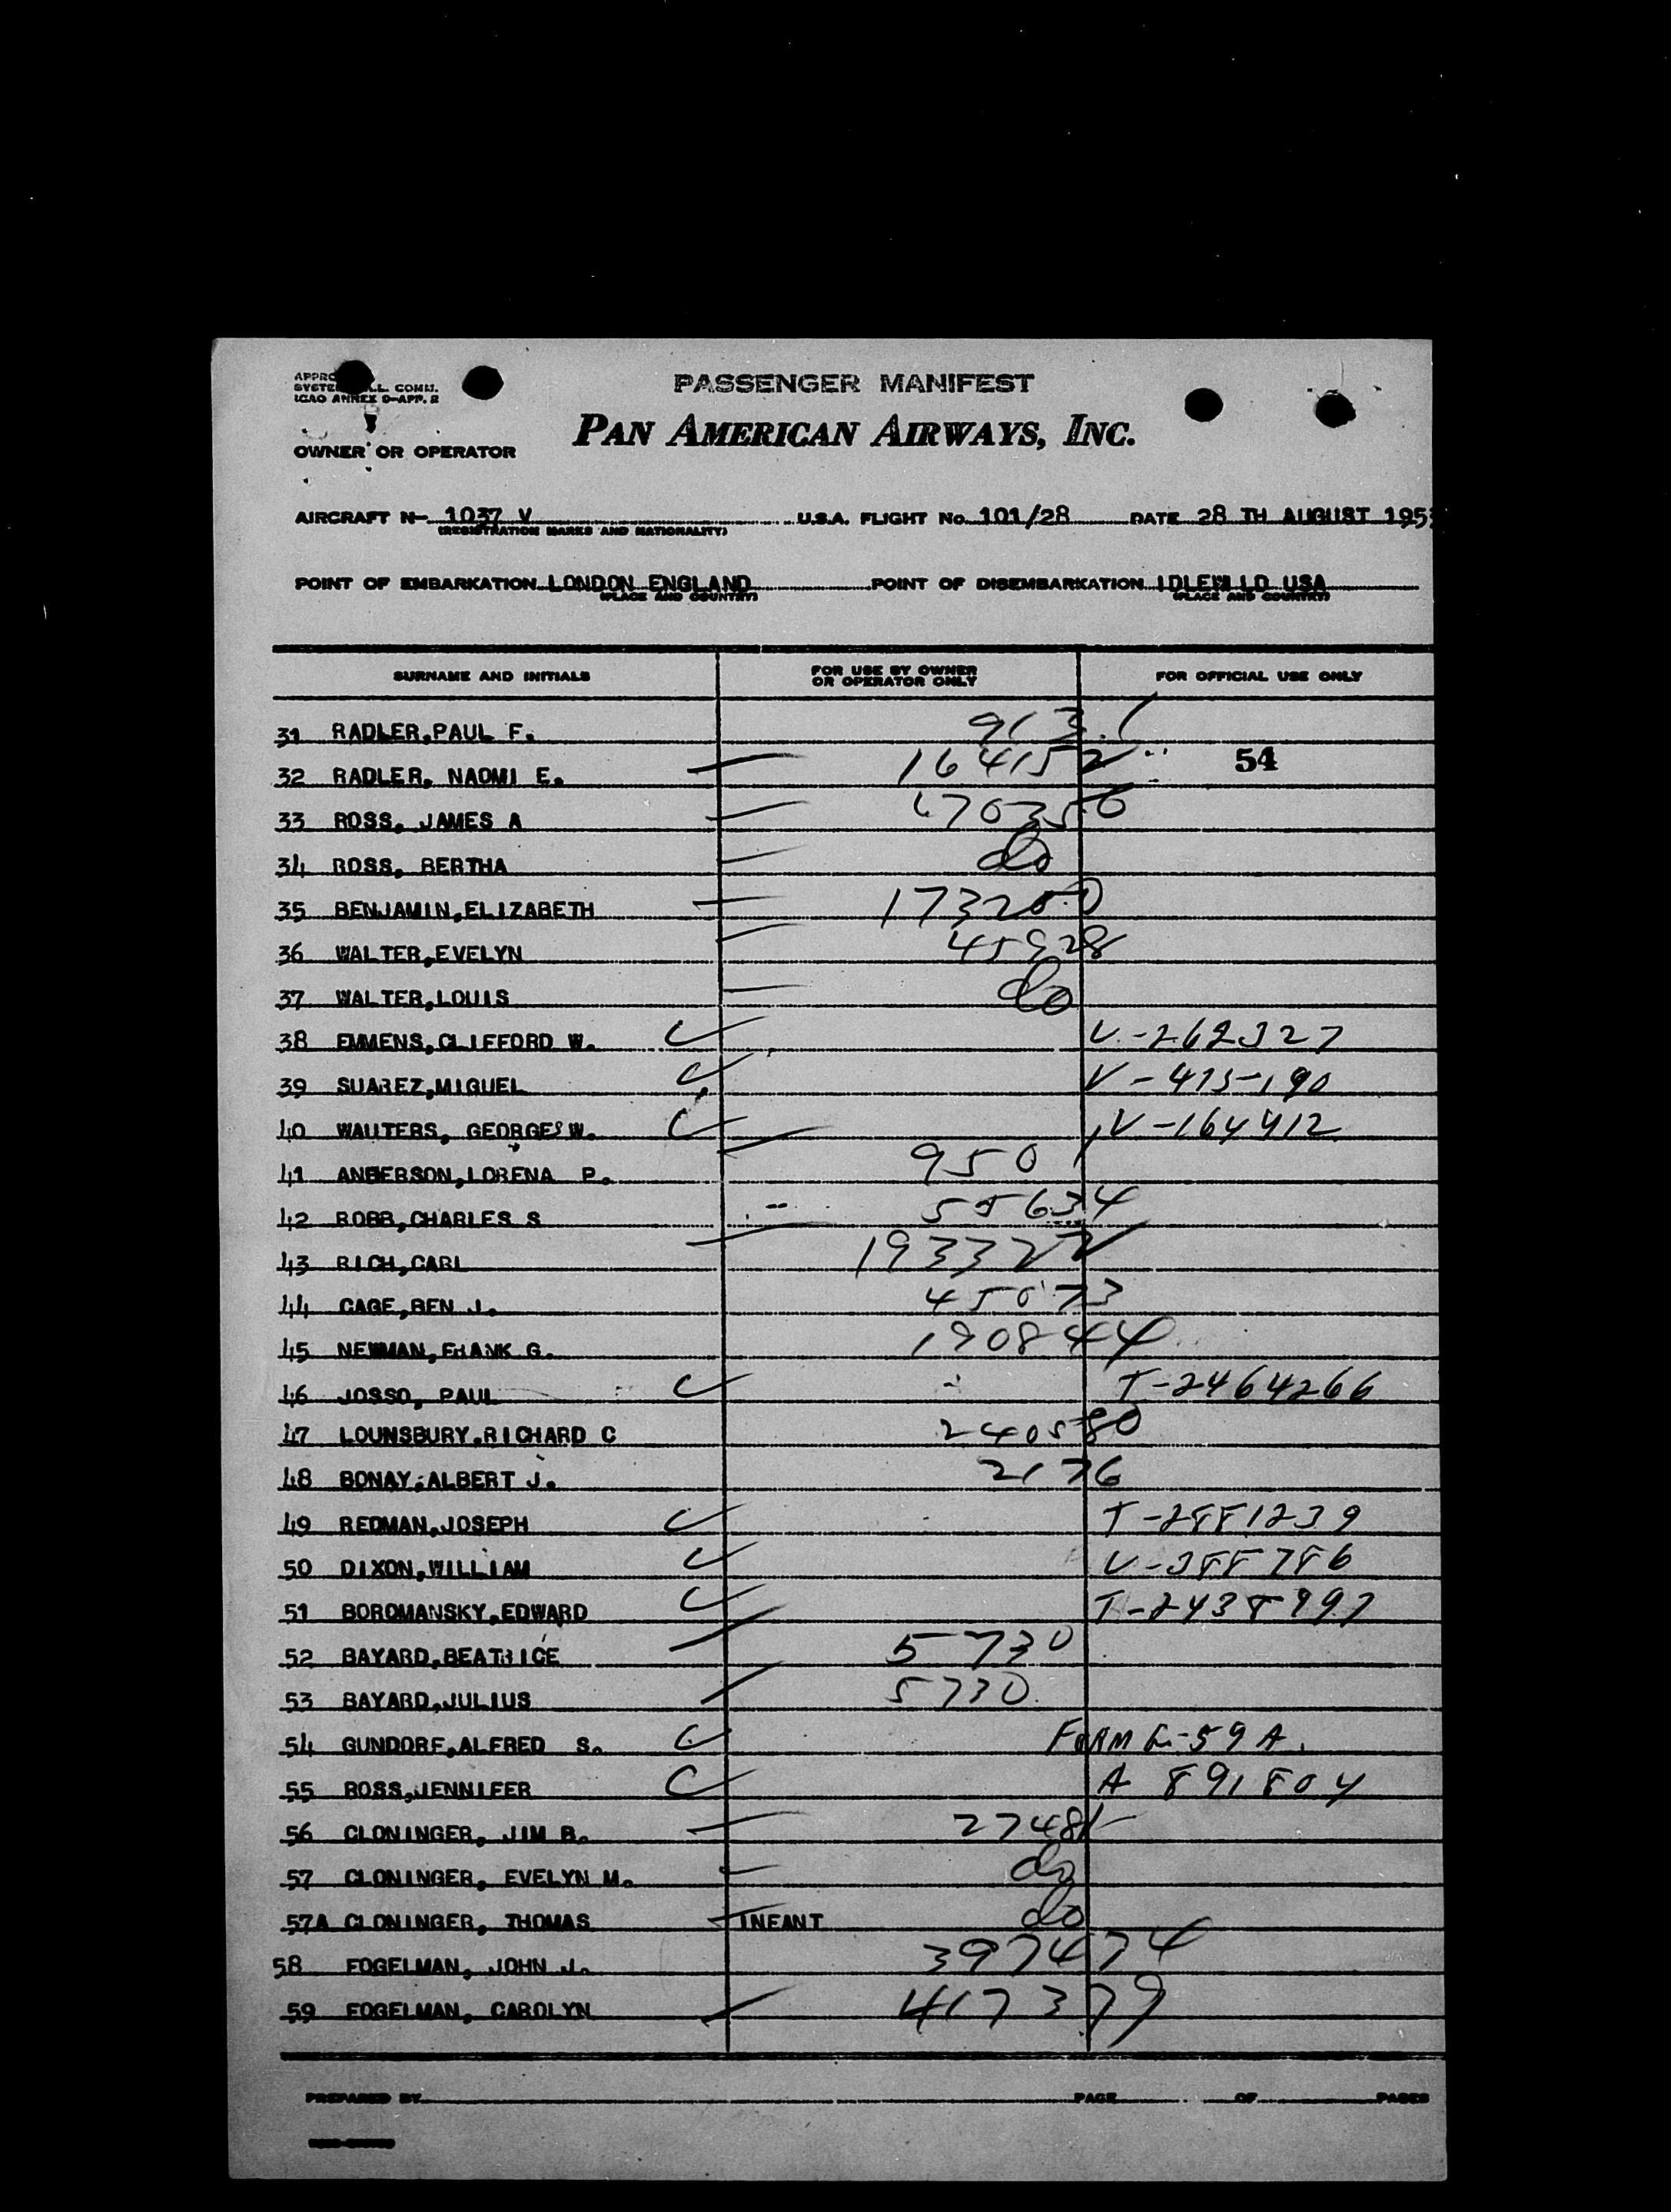 PASSENGER MANIFEST
ICAO ANNEX 9-APP. 2
PAN AMERICAN AIRWAYS, INC.
OWNER OR OPERATOR
AIRCRAFT N- 1037 V U.S.A. FLIGHT No. 101/28 DATE 28 TH AUGUST 195
(REGISTRATION MARKS AND NATIONALITY)
POINT OF EMBARKATION LONDON ENGLAND POINT OF DISEMBARKATION IDLEWILD USA
(PLACE AND COUNTRY) (PLACE AND COUNTRY)
SURNAME AND INITIALS FOR USE BY OWNER OR OPERATOR ONLY FOR OFFICIAL USE ONLY
31 RADLER, PAUL F. 913
32 RADLER, NAOMI E. 164152 54
33 ROSS, JAMES A
34 ROSS, BERTHA do
35 BENJAMIN, ELIZABETH 173200
36 WALTER, EVELYN 45928
37 WALTER, LOUIS do
38 EMMENS, CLIFFORD W. V-262327
39 SUAREZ, MIGUEL V-475190
40 WAUTERS, GEORGES W. V-164412
41 ANDERSON, LORENA P. 950
42 ROBB, CHARLES S 55634
43 RICH, CARL 193322
44 CAGE, BEN J. 45073
45 NEWMAN, FRANK G. 190844
46 JOSSO, PAUL T-2464266
47 LOUNSBURY, RICHARD C 240580
48 BONAY, ALBERT J. 2176
49 REDMAN, JOSEPH T-2881239
50 DIXON, WILLIAM V-388786
51 BOROMANSKY, EDWARD T-2438997
52 BAYARD, BEATRICE 5730
53 BAYARD, JULIUS 5730
54 GUNDORF, ALFRED S. FORM G-59A
55 ROSS, JENNIFER A 891804
56 CLONINGER, JIM B. 27481
57 CLONINGER, EVELYN M. do
57A CLONINGER, THOMAS INFANT do
58 FOGELMAN, JOHN J. 397474
59 FOGELMAN, CAROLYN 417379
PREPARED BY PAGE OF PAGES